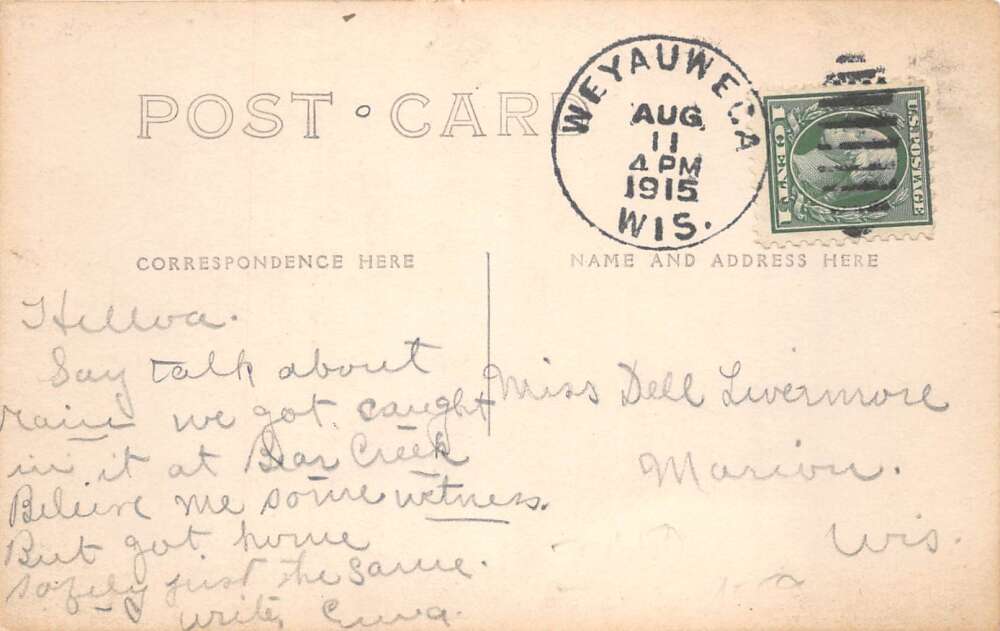 POST CARD
WEYAUWEGA
AUG.
11
4 PM
1915
WIS.
U.S. POSTAGE
1 CENT 1
CORRESPONDENCE HERE
NAME AND ADDRESS HERE
Say talk about
rain we got caught
in it at Bear Creek
Believe me some wetness.
But got home
safely just the same.
write,
Miss Dell Livermore
Marion.
Wis.